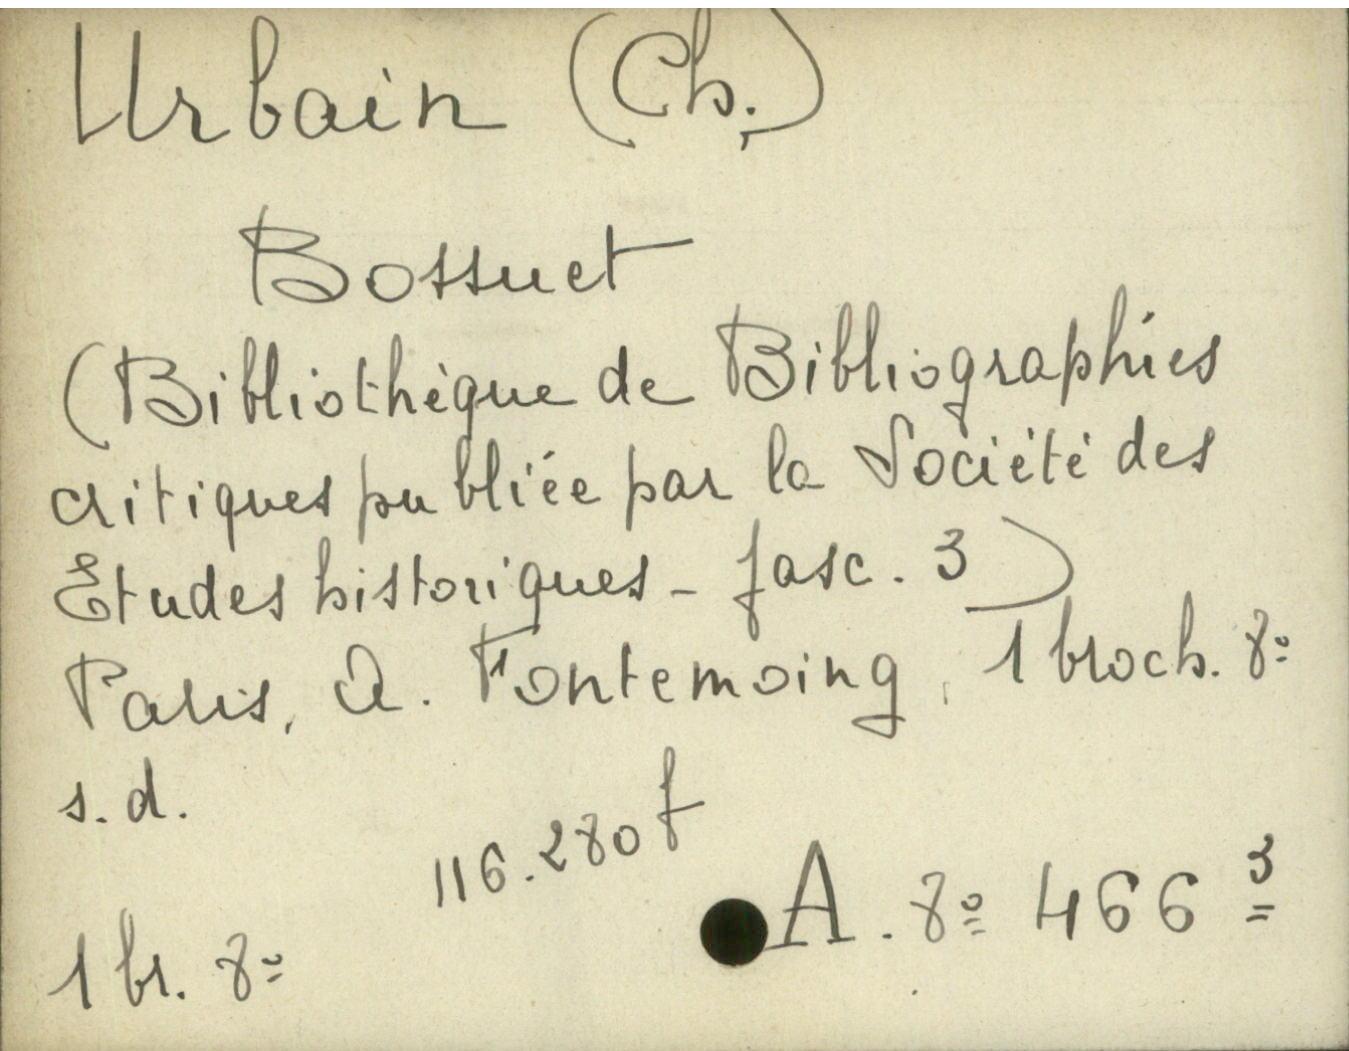 Urbain (Ch.)
Bossuet
(Bibliothèque de Bibliographies
critiques publiée par la Société des
Etudes historiques - fasc. 3)
Paris, A. Fontemoing, 1 broch. 8º
s.d.
116.280 f
A. 8º 466 3
1 br. 8º